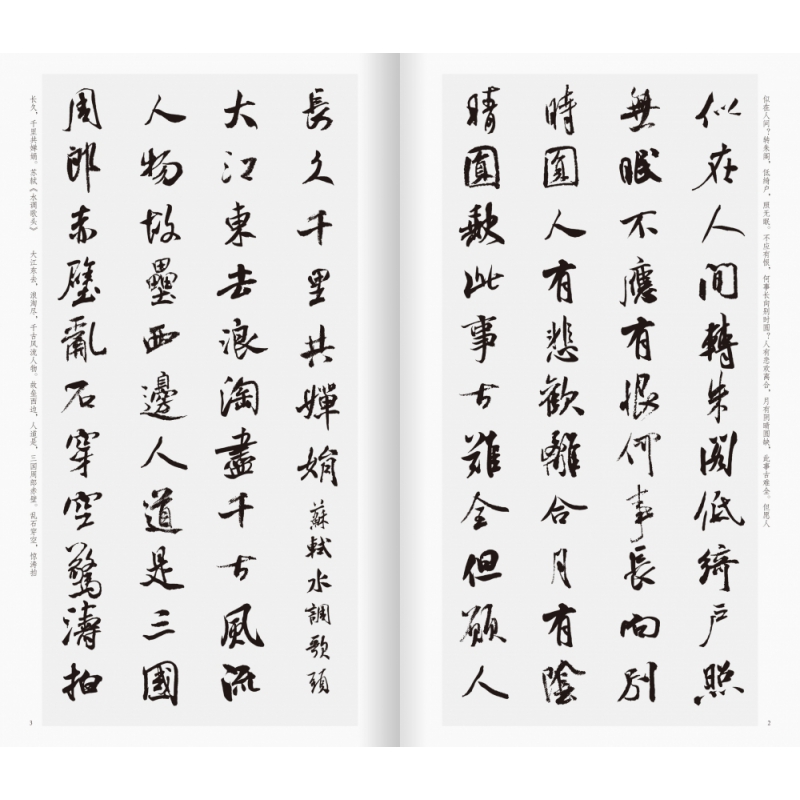 似在人间？转朱阁，低绮户，照无眠。不应有恨，何事长向别时圆？人有悲欢离合，月有阴晴圆缺，此事古难全。但愿人
似在人間轉朱閣低綺戶照
無眠不應有恨何事長向別
時圓人有悲歡離合月有陰
晴圓缺此事古難全但願人
2
長久千里共嬋娟蘇軾水調歌頭
大江東去浪淘盡千古風流
人物故壘西邊人道是三國
周郎赤壁亂石穿空驚濤拍
长久，千里共婵娟。苏轼《水调歌头》 大江东去，浪淘尽，千古风流人物。故垒西边，人道是，三国周郎赤壁。乱石穿空，惊涛拍
3